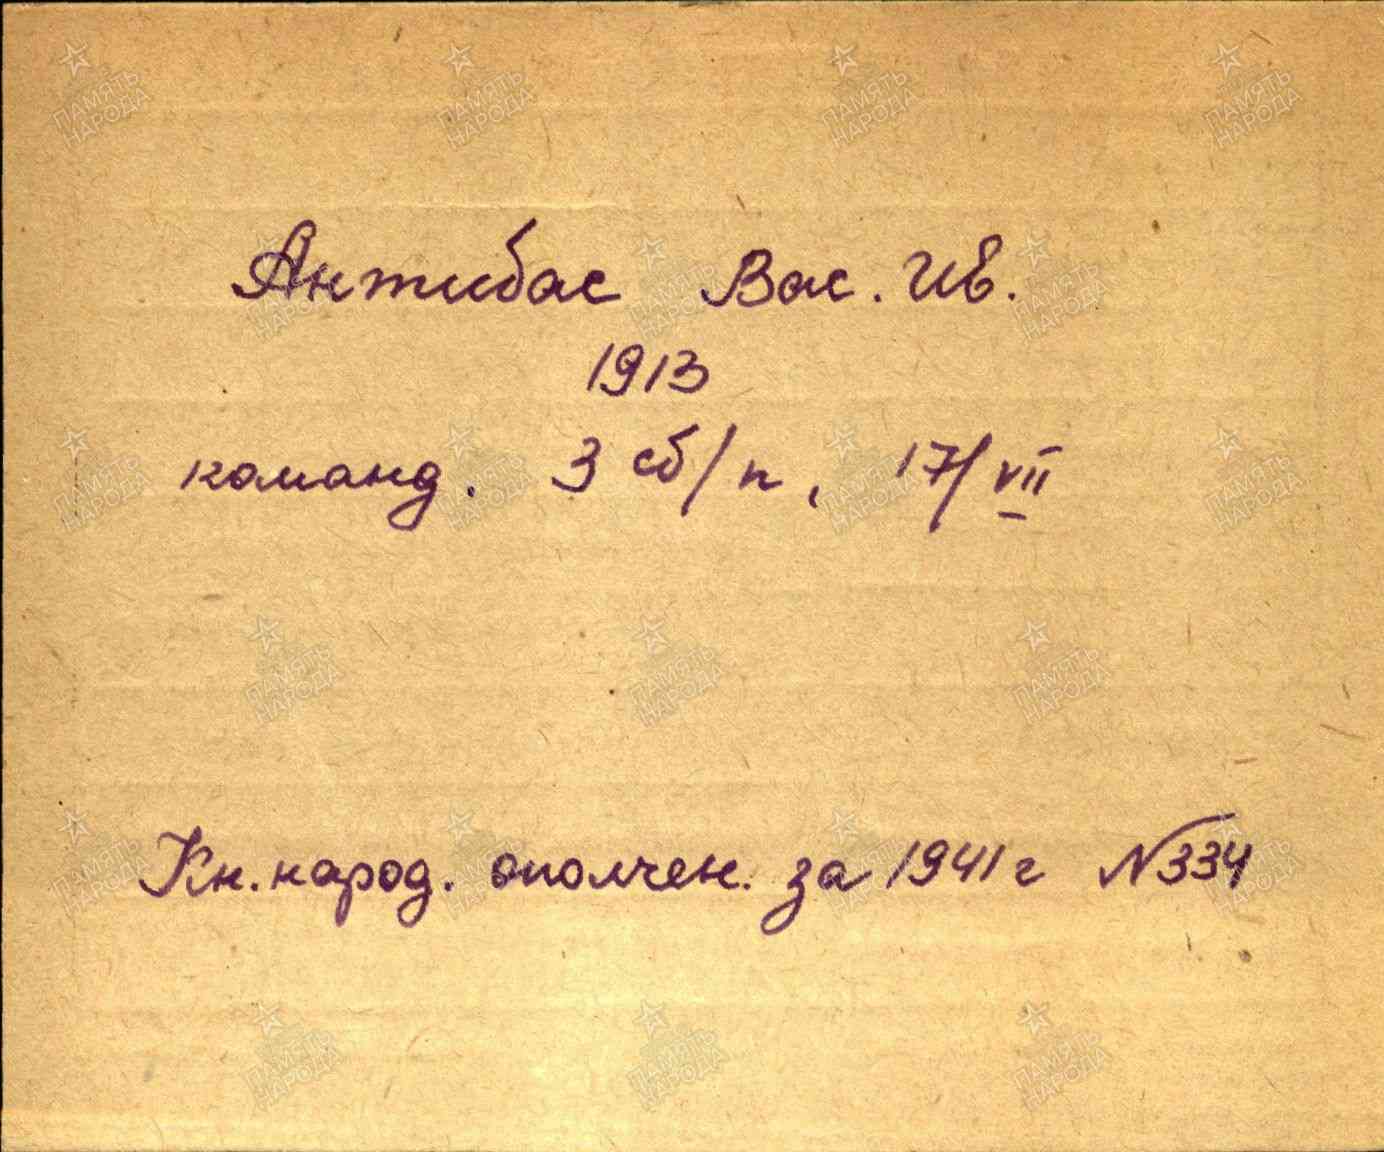 Антибас Вас. Ив.
1913
команд. 3 сб/п, 17/VII
Кн. народ. ополчен. за 1941 г N 334
ПАМЯТЬ НАРОДА